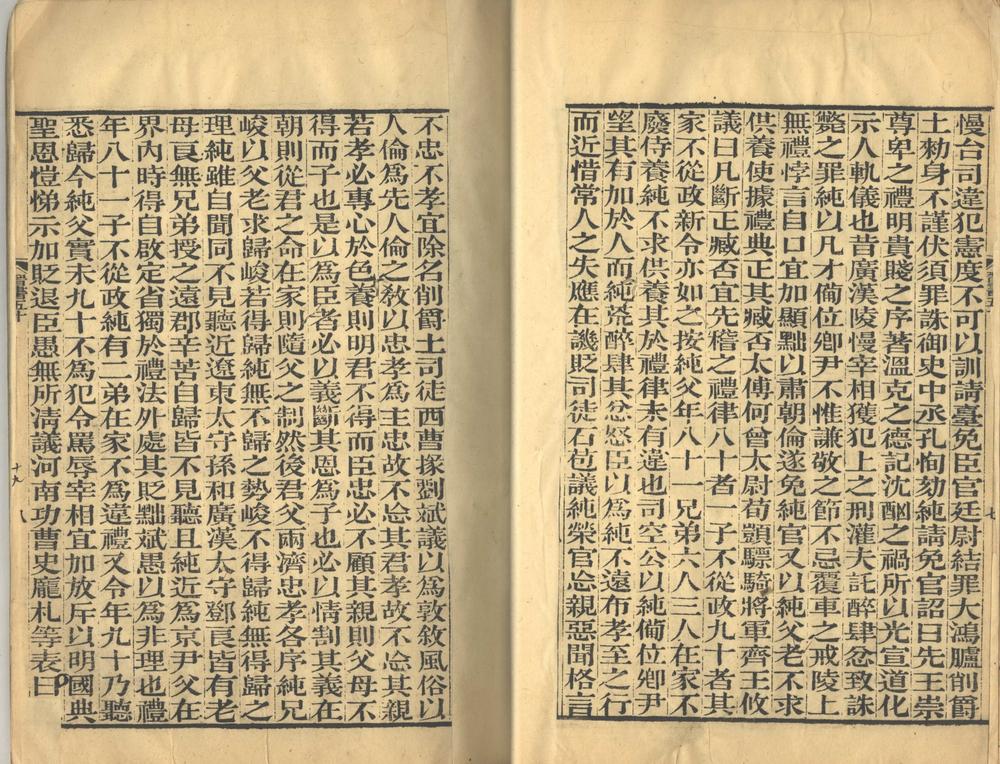 慢台司違犯憲度不可以訓請臺免臣官廷尉結罪大鴻臚削爵
土勑身不謹伏須罪誅御史中丞孔恂劾純請免官詔曰先王崇
尊卑之禮明貴賤之序著溫克之德記沈酗之禍所以光宣道化
示人軌儀也昔廣漢陵慢宰相獲犯上之刑灌夫託醉肆忿致誅
斃之罪純以凡才備位卿尹不惟謙敬之節不忌覆車之戒陵上
無禮悖言自口宜加顯黜以肅朝倫遂免純官又以純父老不求
供養使據禮典正其臧否太傅何曾太尉荀顗驃騎將軍齊王攸
議曰凡斷正臧否宜先稽之禮律八十者一子不從政九十者其
家不從政新令亦如之按純父年八十一兄弟六人三人在家不
廢侍養純不求供養其於禮律未有違也司空公以純備位卿尹
望其有加於人而純荒醉肆其忿怒臣以爲純不遠布孝至之行
而近惜常人之失應在譏貶司徒石苞議純榮官忘親惡聞格言
不忠不孝宜除名削爵土司徒西曹掾劉斌議以爲敦敘風俗以
人倫爲先人倫之敎以忠孝爲主忠故不忘其君孝故不忘其親
若孝必專心於色養則明君不得而臣忠必不顧其親則父母不
得而子也是以爲臣者必以義斷其恩爲子也必以情割其義在
朝則從君之命在家則隨父之制然後君父兩濟忠孝各序純兄
峻以父老求歸峻若得歸純無不歸之勢峻不得歸純無得歸之
理純雖自聞同不見聽近遼東太守孫和廣漢太守鄧良皆有老
母良無兄弟授之遠郡辛苦自歸皆不見聽且純近爲京尹父在
界內時得自啟定省獨於禮法外處其貶黜斌愚以爲非理也禮
年八十一子不從政純有二弟在家不爲違禮又令年九十乃聽
悉歸今純父實未九十不爲犯令罵辱宰相宜加放斥以明國典
聖恩愷悌示加貶退臣愚無所清議河南功曹史龐札等表曰
十九
八